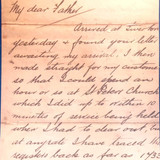 My dear Father
Arrived at Liverpool
yesterday & found your letter
awaiting my arrival. I then
made straight for my customers
so that I could spend an
hour or so at St Peters Church
which I did up to within 10
minutes of service being held
when I had to clear out, but
at any rate I have traced
register back as far as